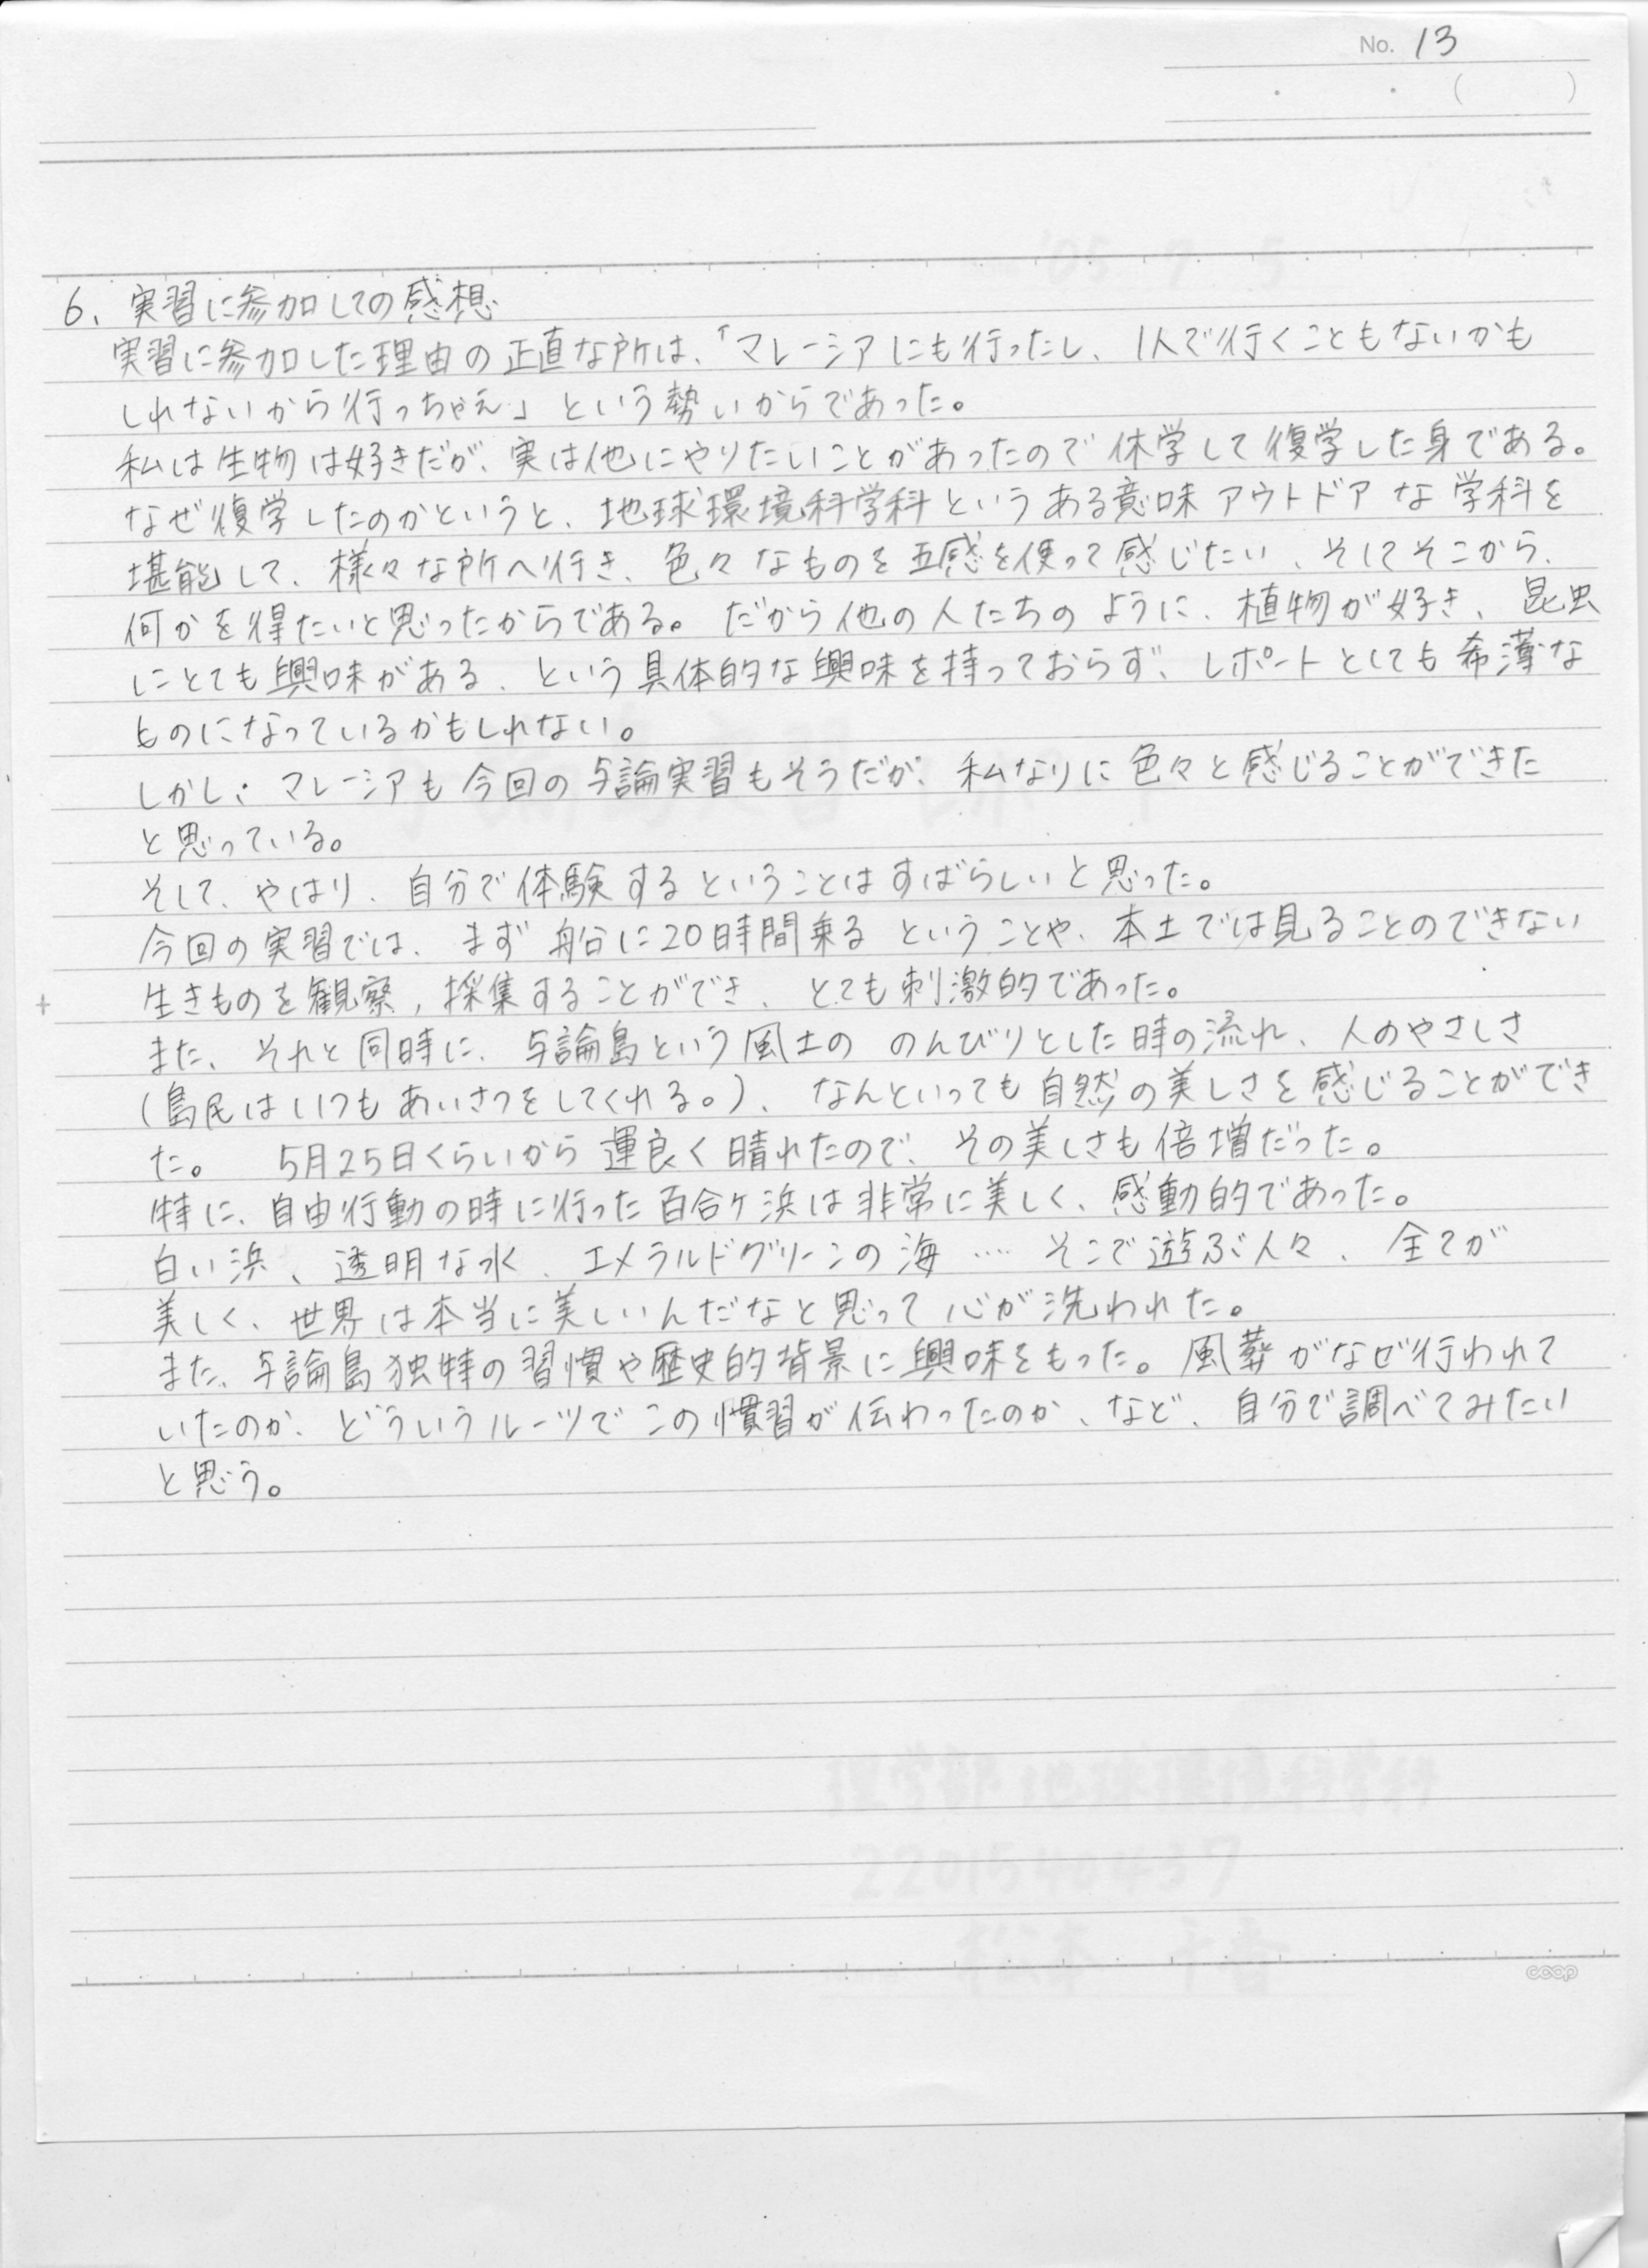 No. 13
6、実習に参加しての感想
実習に参加した理由の正直な所は、「マレーシアにも行ったし、1人で行くこともないかも
しれないから行っちゃえ」という勢いからであった。
私は生物は好きだが、実は他にやりたいことがあったので休学して復学した身である。
なぜ復学したのかというと、地球環境科学科というある意味アウトドアな学科を
堪能して、様々な所へ行き、色々なものを五感を使って感じたい、そしてそこから、
何かを得たいと思ったからである。だから他の人たちのように、植物が好き、昆虫
にとても興味がある、という具体的な興味を持っておらず、レポートとしても希薄な
ものになっているかもしれない。
しかし、マレーシアも今回の与論実習もそうだが、私なりに色々と感じることができた
と思っている。
そして、やはり、自分で体験するということはすばらしいと思った。
今回の実習では、まず船に20時間乗るということや、本土では見ることのできない
生きものを観察,採集することができ、とても刺激的であった。
また、それと同時に、与論島という風土ののんびりとした時の流れ、人のやさしさ
(島民はいつもあいさつをしてくれる。)、なんといっても自然の美しさを感じることができ
た。 5月25日くらいから運良く晴れたので、その美しさも倍増だった。
特に、自由行動の時に行った百合ヶ浜は非常に美しく、感動的であった。
白い浜、透明な水、エメラルドグリーンの海…‥そこで遊ぶ人々、全てが
美しく、世界は本当に美しいんだなと思って心が洗われた。
また、与論島独特の習慣や歴史的背景に興味をもった。風葬がなぜ行われて
いたのか、どういうルーツでこの慣習が伝わったのか、など、自分で調べてみたい
と思う。
理学部 地球環境科学科
coop